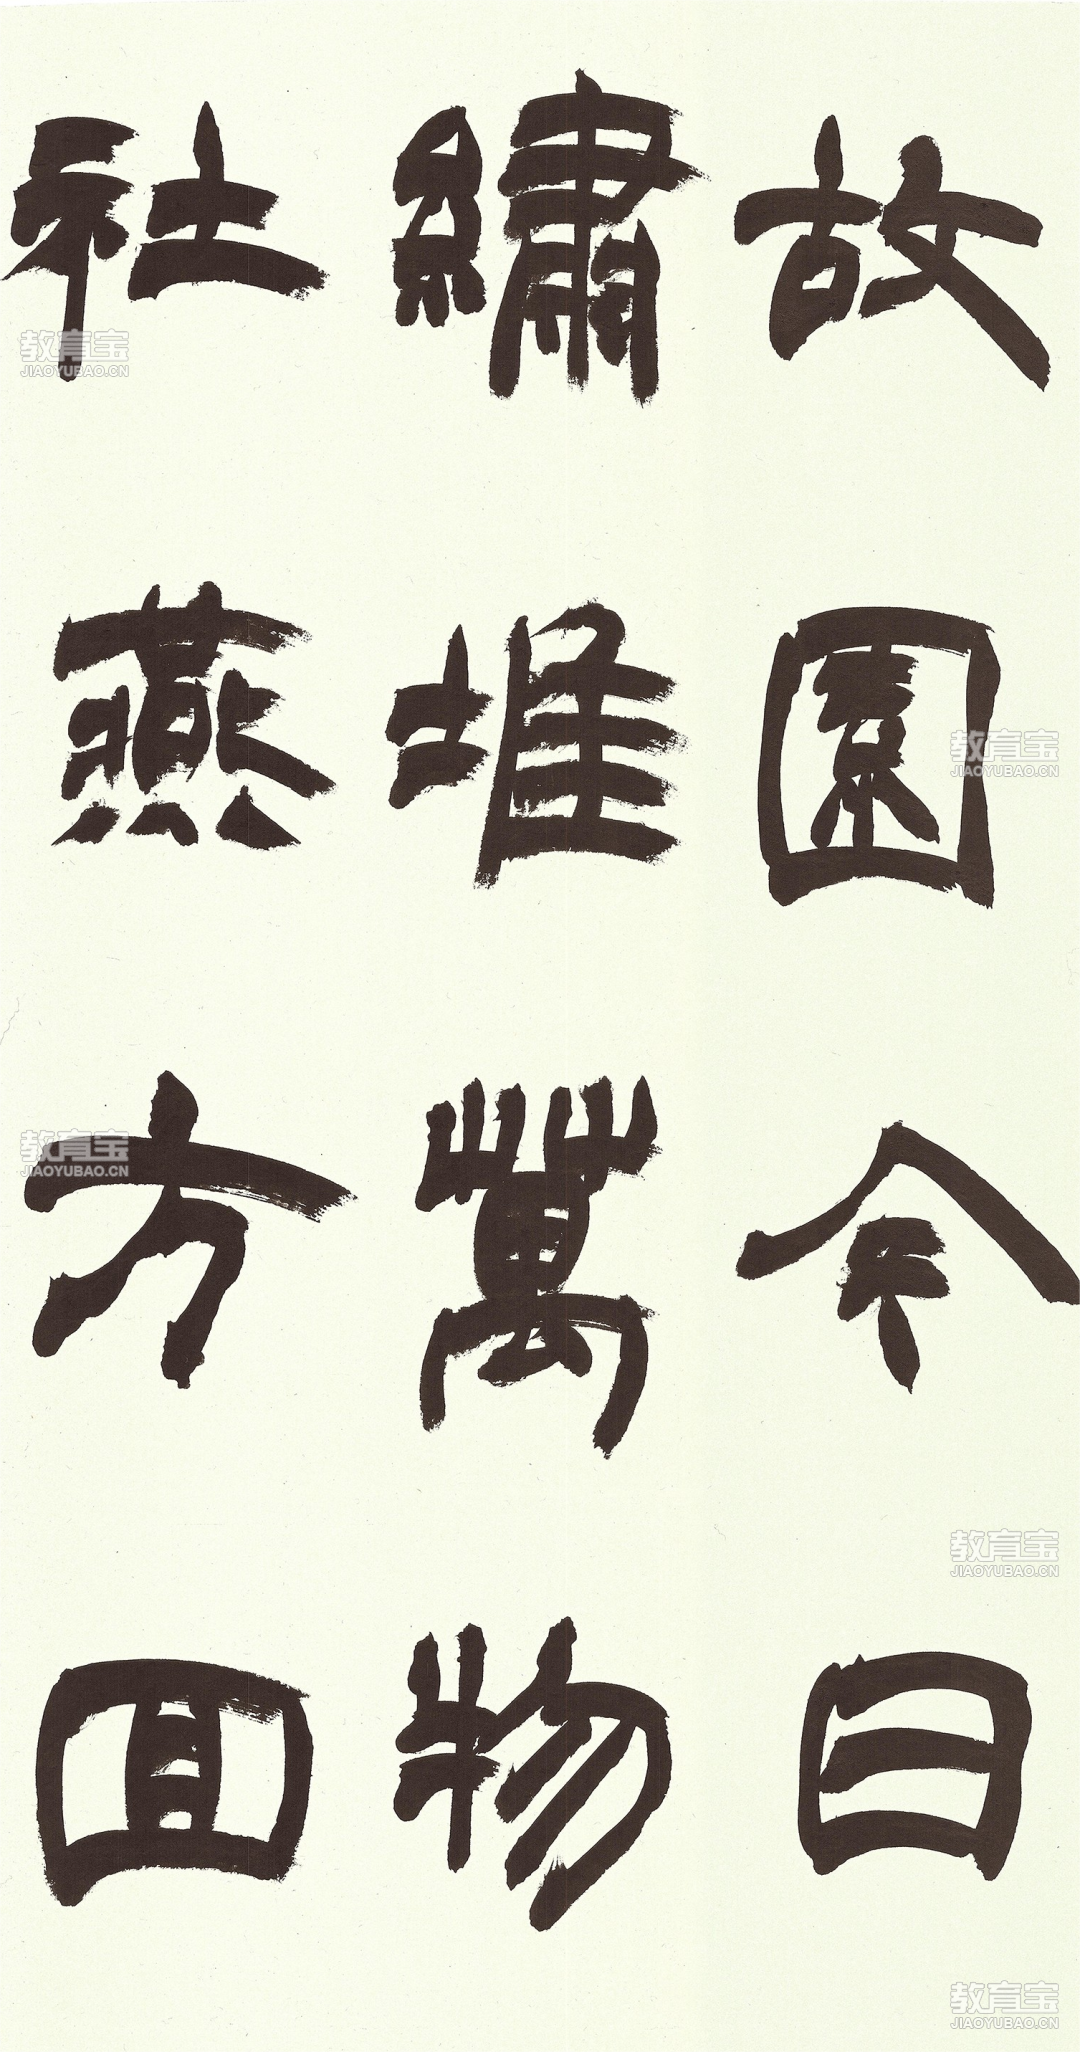 故園今日
繡堆萬物
社燕方回
教育宝
JIAOYUBAO.CN
教育宝
JIAOYUBAO.CN
教育宝
JIAOYUBAO.CN
教育宝
JIAOYUBAO.CN
教育宝
JIAOYUBAO.CN